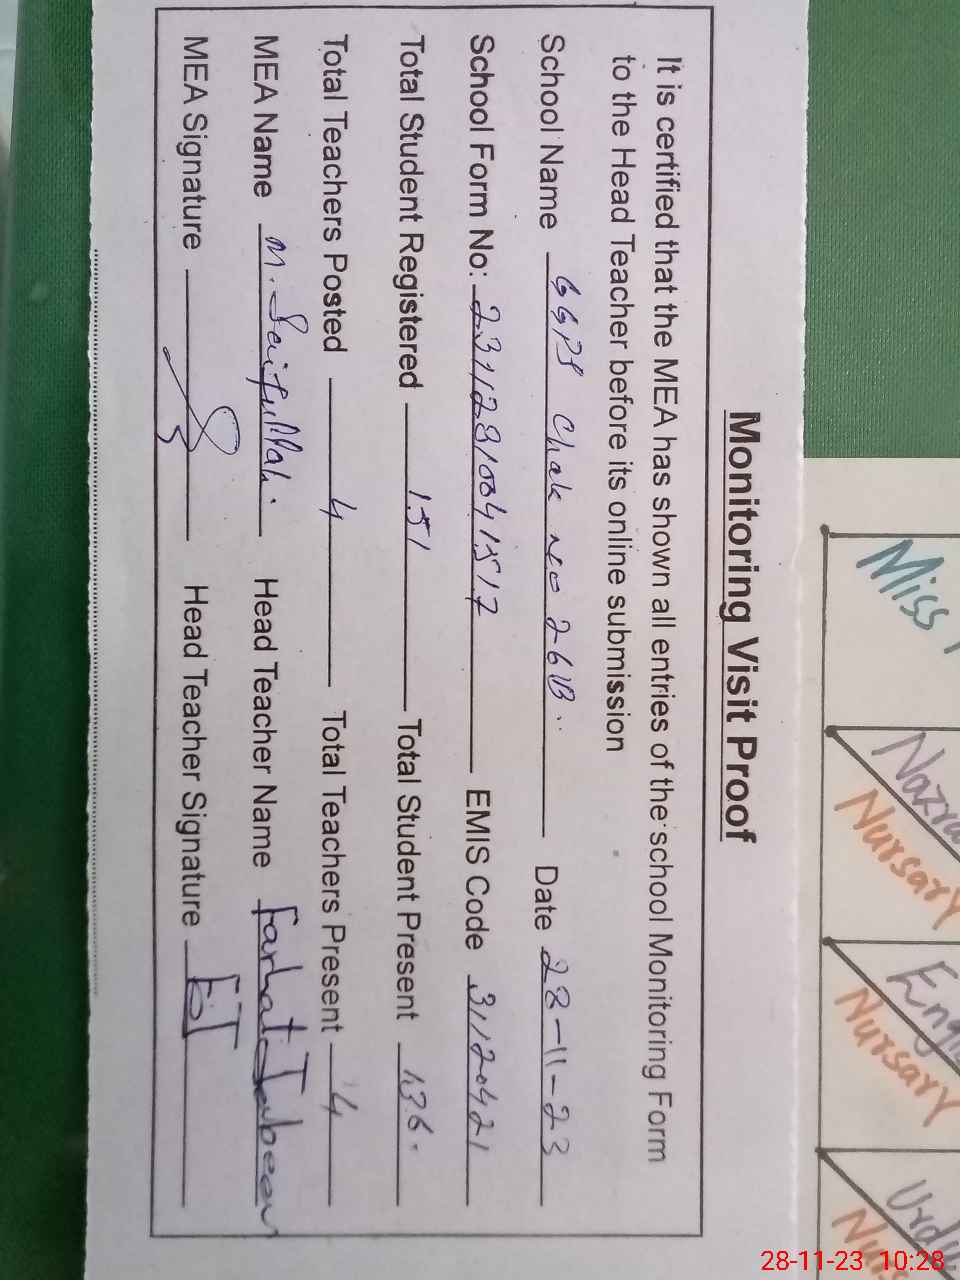 Monitoring Visit Proof
It is certified that the MEA has shown all entries of the school Monitoring Form
to the Head Teacher before its online submission
School Name GGPS Chak No 26B. Date 28-11-23
School Form No: 23112810041517 EMIS Code 31120421
Total Student Registered 151 Total Student Present 136.
Total Teachers Posted 4 Total Teachers Present 4
MEA Name M. Saifullah. Head Teacher Name Farhat Jabeen
MEA Signature Head Teacher Signature FJ
Miss
Nazra
Nursary
Nursary
28-11-23 10:28